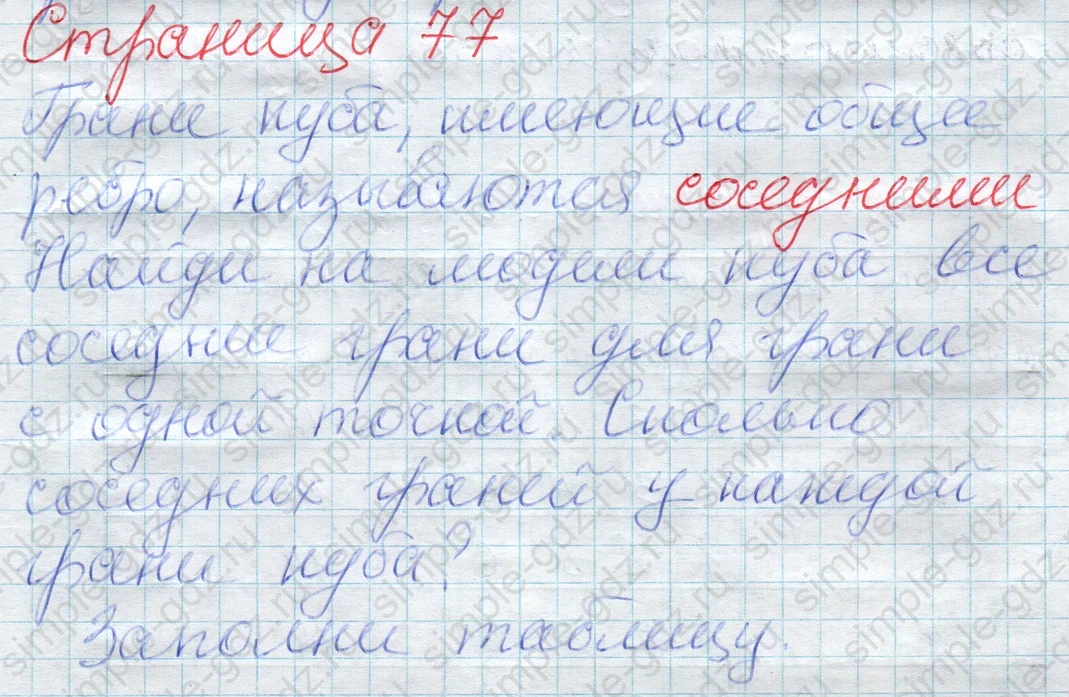 Страница 77
Грани куба, имеющие общее
ребро, называются соседними
Найди на модели куба все
соседние грани для грани
с одной точкой. Сколько
соседних граней у каждой
грани куба?
Заполни таблицу.